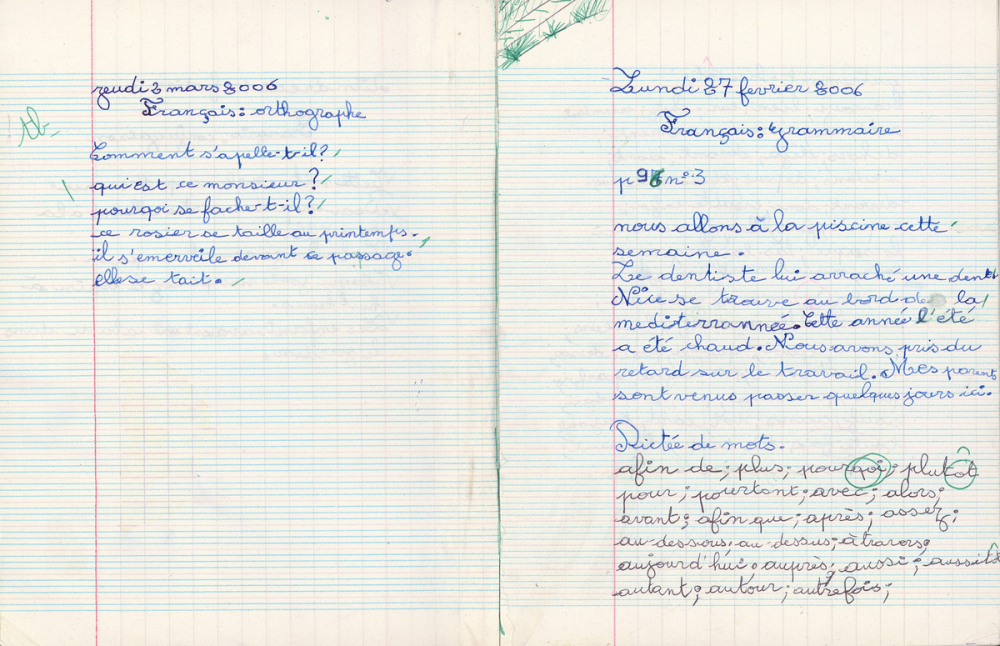 jeudi 2 mars 2006
Français : orthographe
tb
Comment s'apelle-t-il?
qui est ce monsieur?
pourqoi se fache-t-il?
ce rosier se taille au printemps.
il s'emerveile devant ce passage.
elle se tait.
Lundi 27 fevrier 2006
Français : grammaire
p 96 n° 3
nous allons à la piscine cette
semaine.
Le dentiste lui arraché une dent
Nice se trouve au bord de la
mediterrannée. Cette année l'été
a été chaud. Nous avons pris du
retard sur le travail. Mes parents
sont venus passer quelques jours ici.
Dictée de mots.
afin de; plus; pourqoi; plutôt
pour; pourtant; avec; alors;
avant; afin que; après; assez;
au-dessous; au-dessus; à travers;
aujourd'hui; auprès; aussi; aussitôt
autant; autour; autrefois;